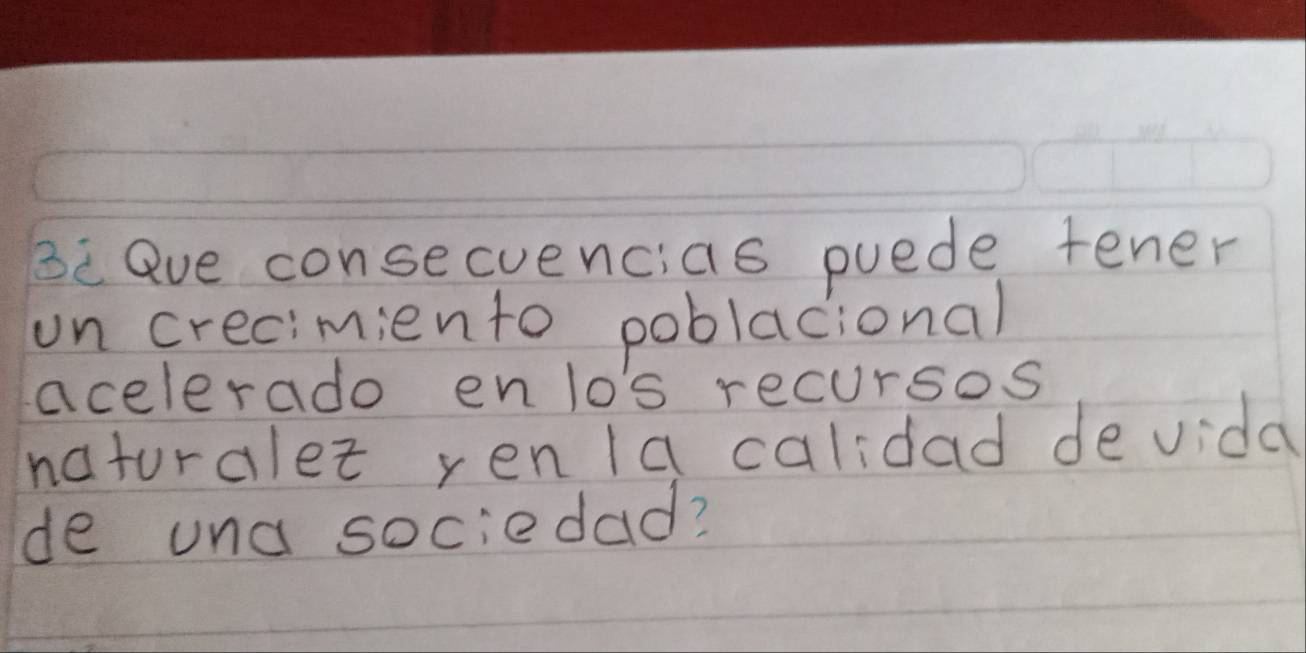 3¿ Que consecuencias puede tener
un crecimiento poblacional
acelerado en los recursos
naturalez y en la calidad de vida
de una sociedad?